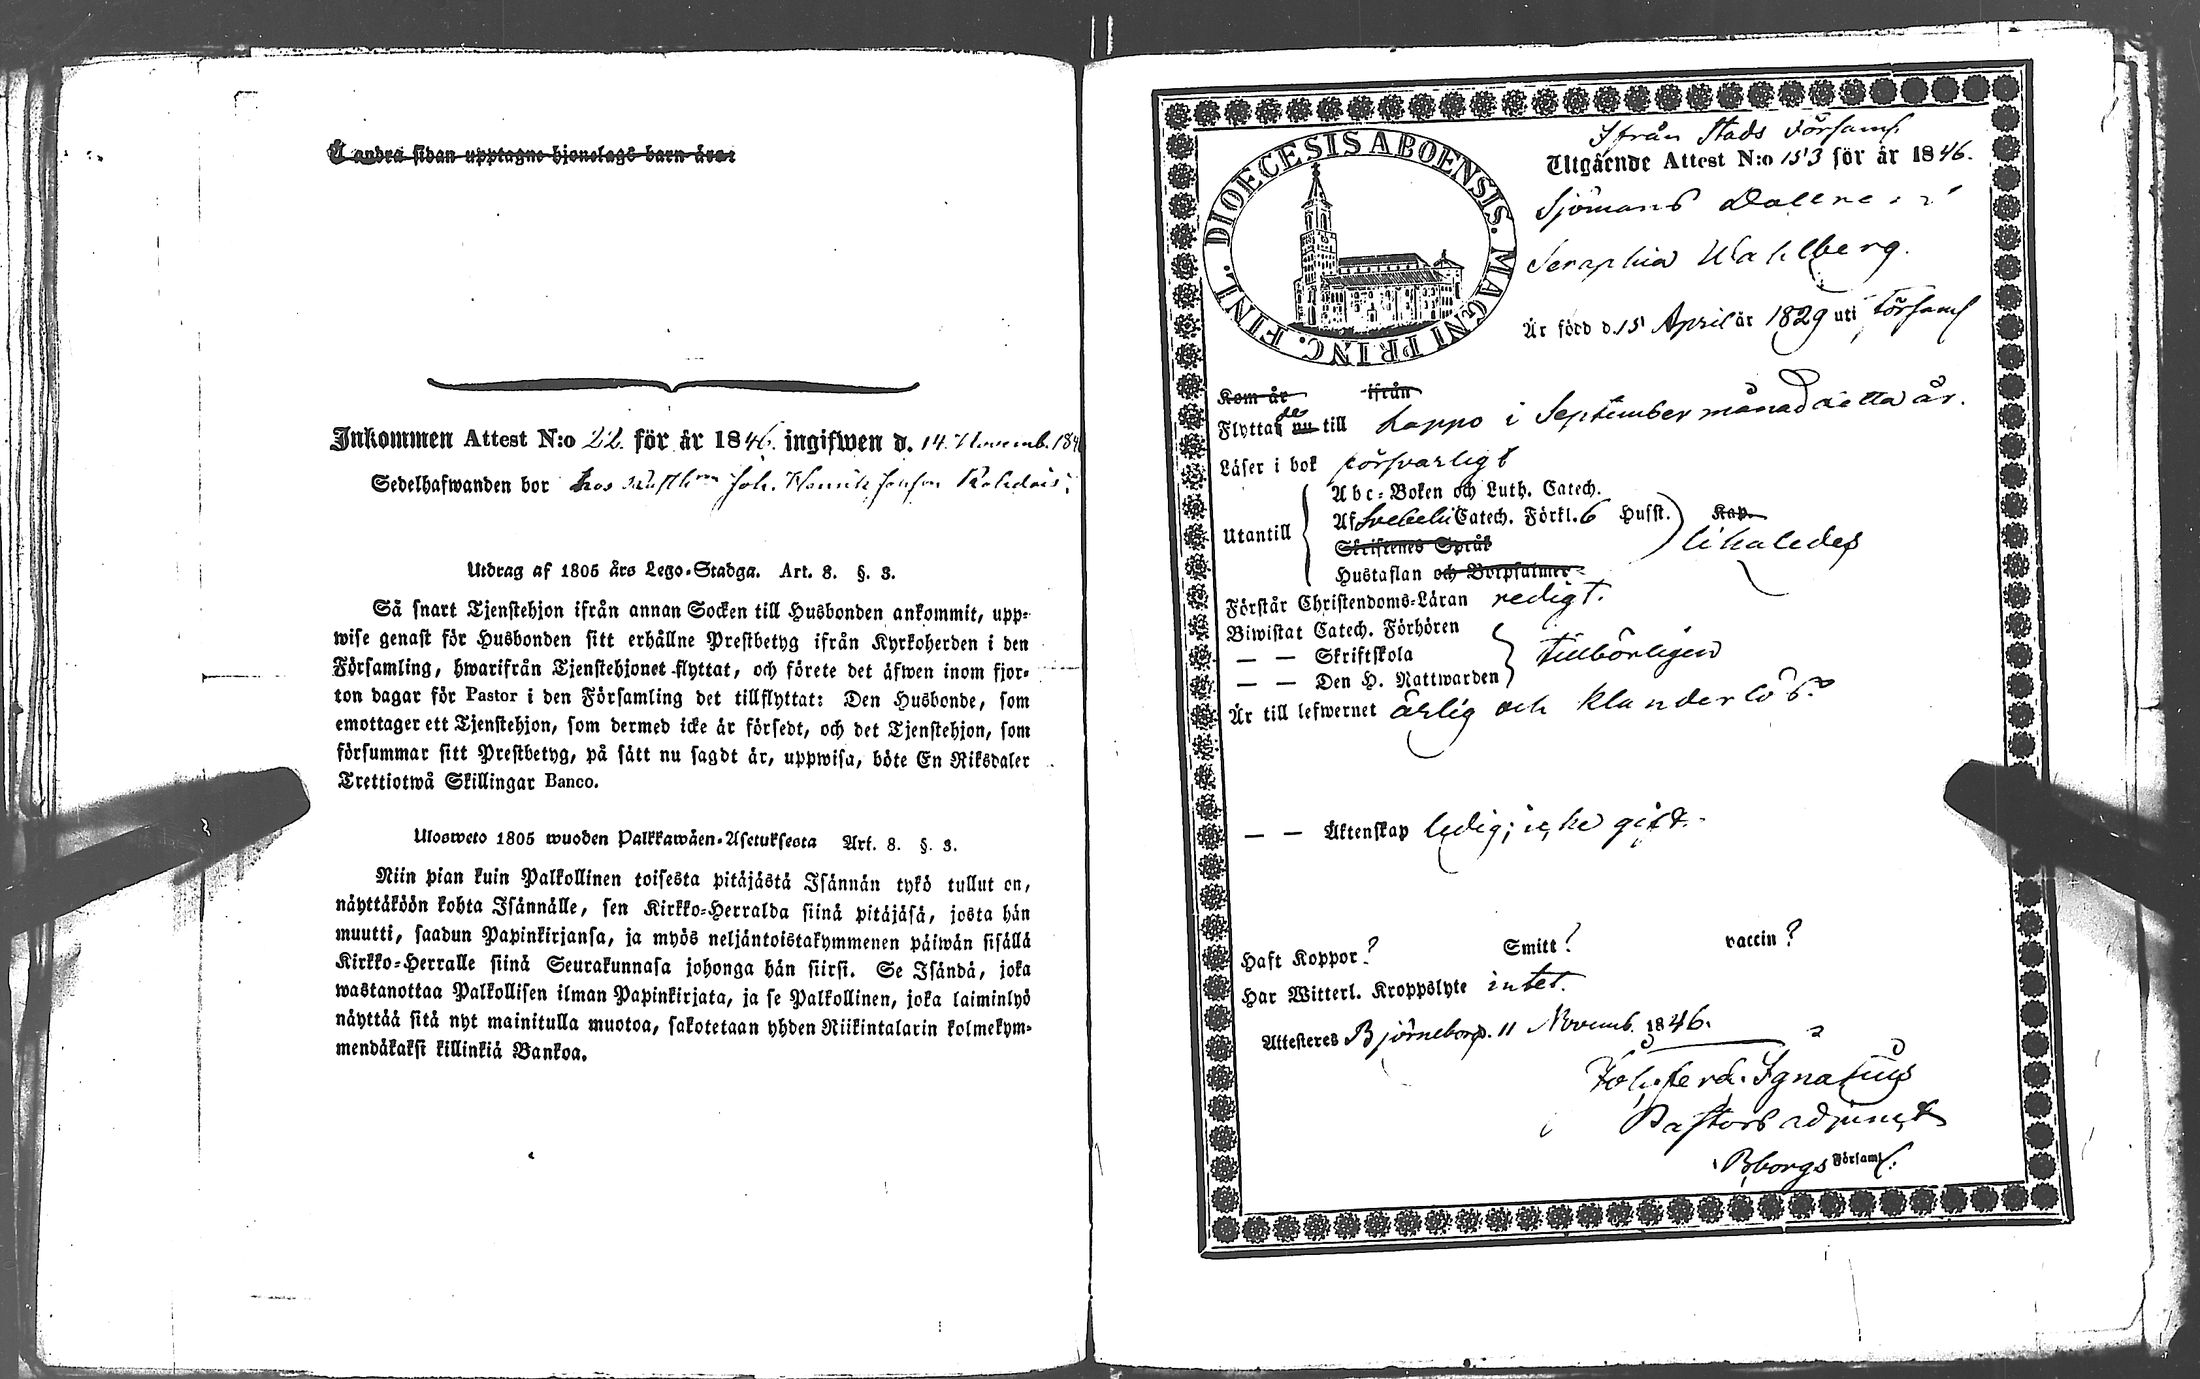 Å andra sidan upptagne hjonelags barn äro:
Inkommen Attest N:o 22. för år 1846. ingifwen d. 14. Novemb. 184
Sedelhafwanden bor hos Joh. Henrik
Utdrag af 1805 års Lego-Stadga. Art. 8. §. 3.
Så snart Tjenstehjon ifrån annan Socken till Husbonden ankommit, upp-
wise genast för Husbonden sitt erhållne Prestbetyg ifrån Kyrkoherden i den
Församling, hwarifrån Tjenstehjonet flyttat, och förete det äfwen inom fjor-
ton dagar för Pastor i den Församling det tillflyttat: Den Husbonde, som
emottager ett Tjenstehjon, som dermed icke är försedt, och det Tjenstehjon, som
försummar sitt Prestbetyg, på sätt nu sagdt är, uppwisa, böte En Riksdaler
Trettiotwå Skillingar Banco.
Ulosweto 1805 wuoden Palkkawäen-Asetuksesta Art. 8. §. 3.
Niin pian kuin Palkollinen toisesta pitäjästä Isännän tykö tullut on,
näyttäköön kohta Isännälle, sen Kirkko-Herralda siinä pitäjäsä, josta hän
muutti, saadun Papinkirjansa, ja myös neljäntoistakymmenen päiwän sisällä
Kirkko-Herralle siinä Seurakunnasa johonga hän siirsi. Se Isändä, joka
wastanottaa Palkollisen ilman Papinkirjata, ja se Palkollinen, joka laiminlyö
näyttää sitä nyt mainitulla muotoa, sakotetaan yhden Riikintalarin kolmekym-
mendäkaksi killinkiä Bankoa.
DIOECESIS ABOENSIS. MAGNI PRINC. FINL.
Ifrån Stads Församl.
Utgående Attest N:o 153 för år 1846.
Sjömans Dottren
Seraphia Wahlberg.
Är född d. 15 April år 1829 uti Församl
Kom år ifrån
Flyttade nu till Lappo i September månad detta år.
Läser i bok försvarligt
Utantill
Abc-Boken och Luth. Catech.
Af Svebelii Catech. Förkl. 6 Hufst. Kap.
Skriftenes Språk likaledes
Hustaflan och Botpsalmer
Förstår Christendoms-Läran redigt.
Biwistat Catech. Förhören
— — Skriftskola tillbörligen
— — Den H. Nattwarden
Är till lefwernet ärlig och klanderlös.
— — Äktenskap ledig; icke gift.
Haft Koppor? Smitt? vaccin?
Har Witterl. Kroppslyte intet.
Attesteras Björneborg. 11 Novemb. 1846.
Joh. Ferd. Ignatius
Pastors adjunct
Bborgs Församl.